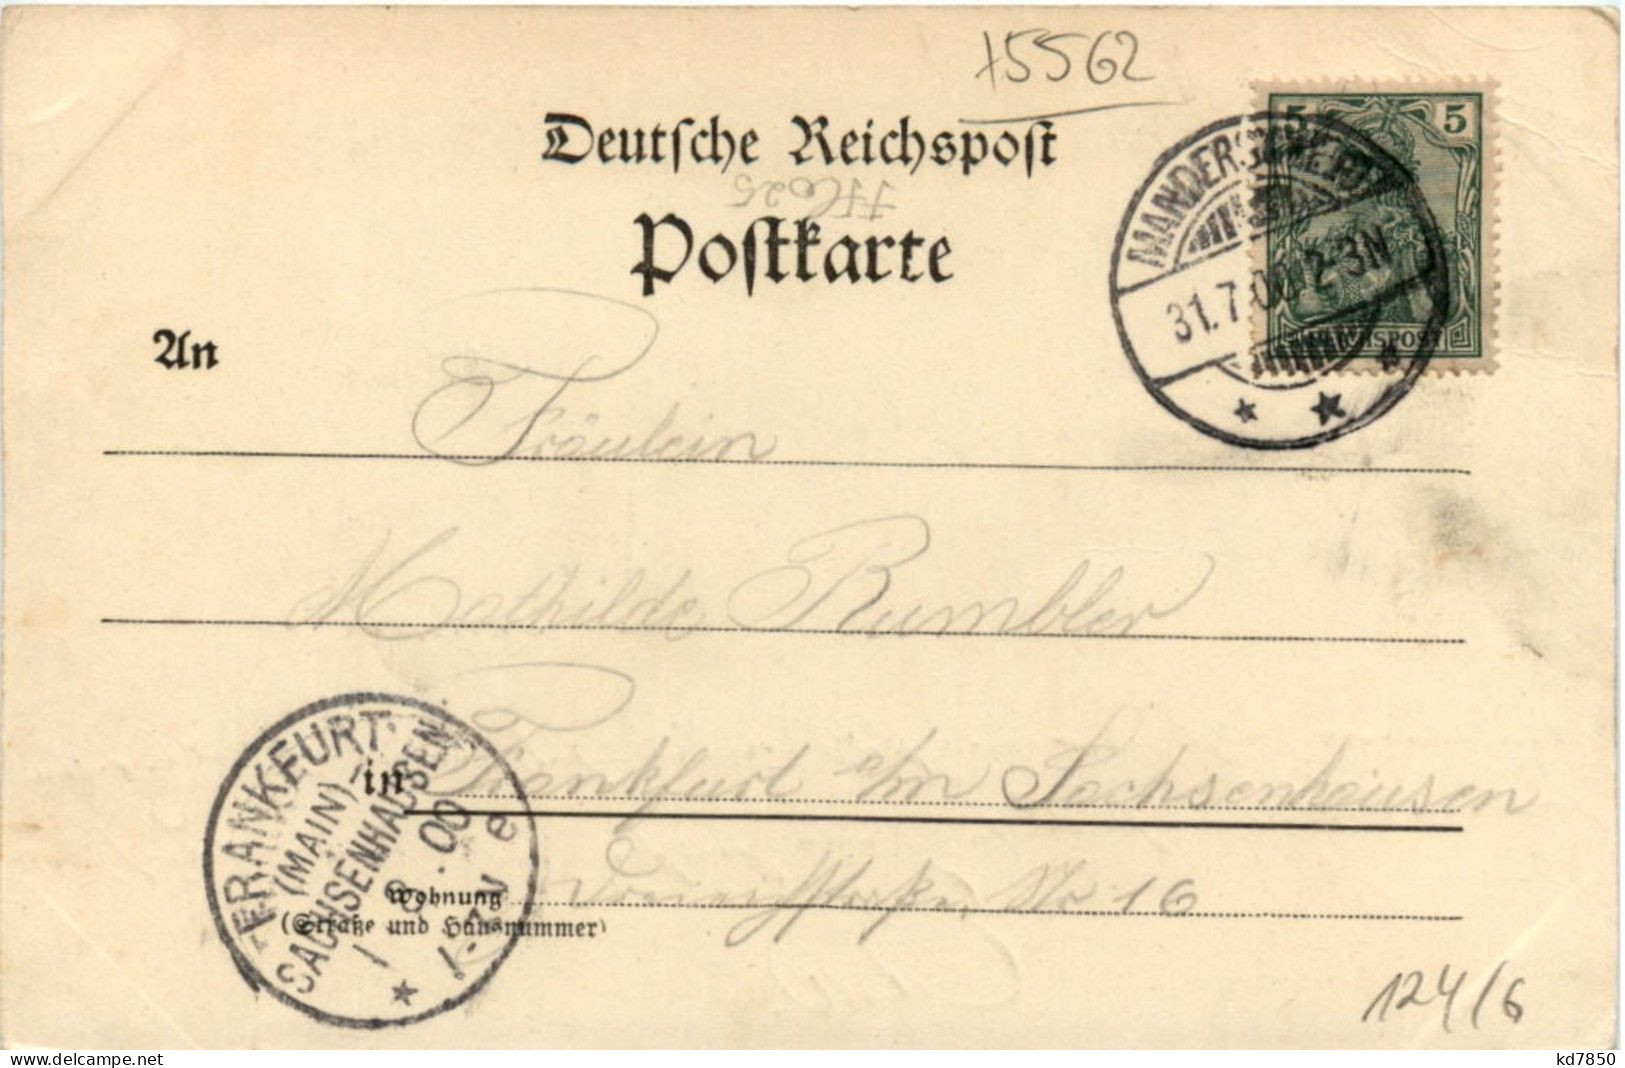 75562
5 5
Deutsche Reichspost
Postkarte
REICHSPOST
MANDERSCHEID
31.7.00 2-3N
An
Fräulein
Mathilde Rumbler
in Frankfurt a/m Sachsenhausen
Wohnung
(Straße und Hausnummer)
No 16
FRANKFURT
(MAIN)
SACHSENHAUSEN
1 8.00
1-2N
e
124/6
kd7850